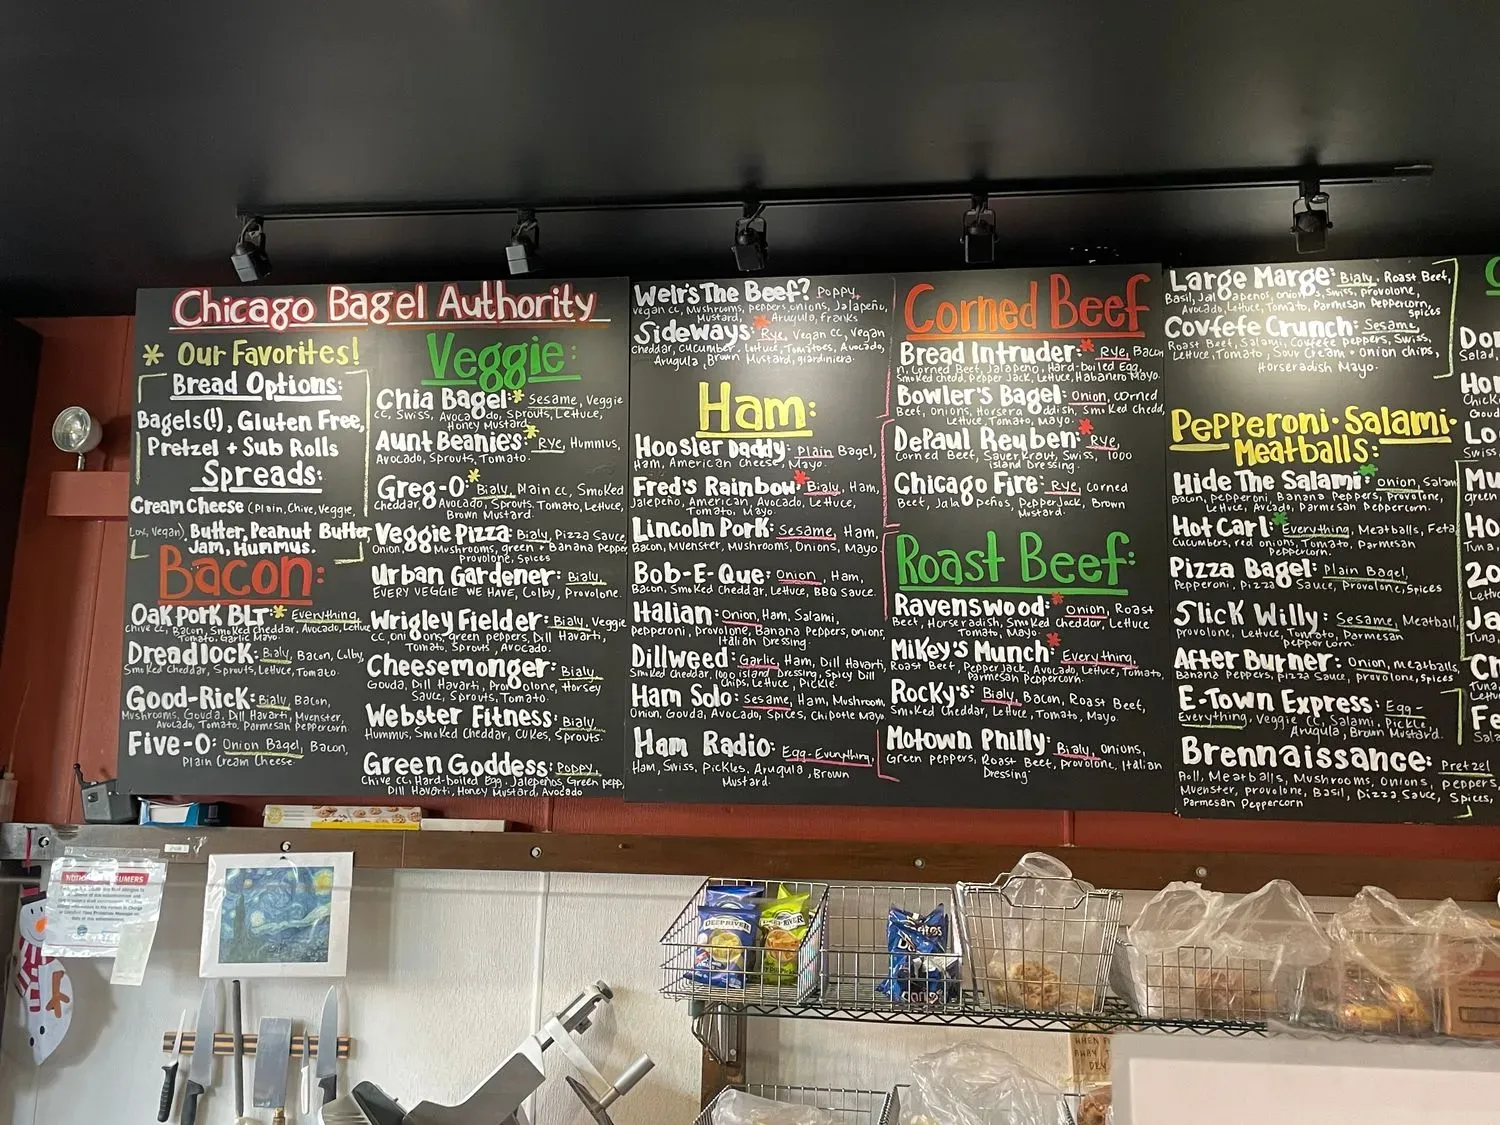 Chicago Bagel Authority
* Our Favorites!
Bread Options:
Bagels(!), Gluten Free,
Pretzel + Sub Rolls
Spreads:
Cream Cheese (Plain, Chive, Veggie,
Lox, Vegan) Butter, Peanut Butter
Jam, Hummus.
Bacon:
Oak Pork BLT:* Everything,
Chive cc, Bacon, Smoked Cheddar, Avocado, Lettuce
Tomato, Garlic Mayo.
Dreadlock: Bialy, Bacon, Colby,
Smoked Cheddar, Sprouts, Lettuce, Tomato.
Good-Rick: Bialy, Bacon,
Mushrooms, Gouda, Dill Havarti, Muenster,
Avocado, Tomato, Parmesan Peppercorn.
Five-O: Onion Bagel, Bacon,
Plain Cream Cheese
Veggie:
Chia Bagel:* Sesame, Veggie
cc, Swiss, Avocado, Sprouts, Lettuce,
Honey Mustard
Aunt Beanies:* Rye, Hummus,
Avocado, Sprouts, Tomato.
Greg-O:* Bialy, Plain cc, Smoked
Cheddar, Avocado, Sprouts, Tomato, Lettuce,
Brown Mustard.
Veggie Pizza: Bialy, Pizza Sauce,
Onion, Mushrooms, green + Banana Pepper,
Provolone, Spices
Urban Gardener: Bialy,
EVERY VEGGIE WE HAVE, Colby, Provolone.
Wrigley Fielder: Bialy, Veggie
cc, onions, green peppers, Dill Havarti,
Tomato, Sprouts, Avocado.
Cheesemonger: Bialy,
Gouda, Dill Havarti, Provolone, Horsey
Sauce, Sprouts, Tomato.
Webster Fitness: Bialy,
Hummus, Smoked Cheddar, Cukes, Sprouts.
Green Goddess: Poppy,
Chive cc, Hard-boiled Egg, Jalepeños, Green pepp,
Dill Havarti, Honey Mustard, Avocado
Welr's The Beef? Poppy,
vegan cc, Mushrooms, peppers, onions, Jalapeño,
Mustard, Arugula, Franks
Sideways:* Rye, Vegan cc, Vegan
cheddar, cucumber, Lettuce, Tomatoes, Avocado,
Arugula, Brown Mustard, giardiniera.
Ham:
Hoosier Daddy: Plain Bagel,
Ham, American Cheese, Mayo.
Fred's Rainbow:* Bialy, Ham,
Jalepeño, American, Avocado, Lettuce,
Tomato, Mayo
Lincoln Pork: Sesame, Ham,
Bacon, Muenster, Mushrooms, Onions, Mayo
Bob-E-Que: Onion, Ham,
Bacon, Smoked Cheddar, Lettuce, BBQ Sauce.
Italian: Onion, Ham, Salami,
Pepperoni, Provolone, Banana Peppers, onions,
Italian Dressing.
Dillweed: Garlic, Ham, Dill Havarti,
Smoked Cheddar, 1000 island Dressing, Spicy Dill
Chips, Lettuce, Pickle.
Ham Solo: Sesame, Ham, Mushroom,
Onion, Gouda, Avocado, Spices, Chipotle Mayo
Ham Radio: Egg-Everything,
Ham, Swiss, Pickles, Arugula, Brown
Mustard.
Corned Beef
Bread Intruder:* Rye, Bacon
n, Corned Beef, Jalapeño, Hard-boiled Egg,
Smoked chedd, Pepper Jack, Lettuce, Habanero Mayo.
Bowler's Bagel: Onion, corned
Beef, Onions, Horseradish, Smoked Chedd,
Lettuce, Tomato, Mayo.
DePaul Reuben:* Rye,
Corned Beef, Sauerkraut, Swiss, 1000
island Dressing.
Chicago Fire: Rye, corned
Beef, Jalapeños, Pepper Jack, Brown
Mustard.
Roast Beef:
Ravenswood:* Onion, Roast
Beef, Horseradish, Smoked Cheddar, Lettuce
Tomato, Mayo.
Mikey's Munch:* Everything,
Roast Beef, Pepper Jack, Avocado, Lettuce, Tomato,
Parmesan Peppercorn.
Rocky's: Bialy, Bacon, Roast Beef,
Smoked Cheddar, Lettuce, Tomato, Mayo.
Motown Philly: Bialy, Onions,
Green peppers, Roast Beef, Provolone, Italian
Dressing
Large Marge: Bialy, Roast Beef,
Basil, Jalapenos, onions, Swiss, provolone,
Avocado, Lettuce, Tomato, Parmesan Peppercorn,
Spices
Covfefe Crunch: Sesame,
Roast Beef, Salami, Covfefe peppers, Swiss,
Lettuce, Tomato, Sour Cream + Onion chips,
Horseradish Mayo.
Pepperoni·Salami·
Meatballs:
Hide The Salami:* Onion, Salam
Bacon, Pepperoni, Banana Peppers, Provolone,
Lettuce, Avcado, Parmesan Peppercorn.
Hot Carl:* Everything, Meatballs, Feta
Cucumbers, red onions, Tomato, Parmesan
Peppercorn.
Pizza Bagel: Plain Bagel,
Pepperoni, Pizza Sauce, Provolone, Spices
Slick Willy: Sesame, Meatball,
provolone, Lettuce, Tomato, Parmesan
pepper corn.
After Burner: Onion, meatballs,
Banana Peppers, pizza Sauce, provolone, Spices
E-Town Express: Egg-
Everything, Veggie CC, Salami, Pickle,
Arugula, Brown Mustard.
Brennaissance: Pretzel
Roll, Meatballs, Mushrooms, Onions, peppers,
Muenster, provolone, Basil, Pizza Sauce, Spices,
Parmesan Peppercorn
DEEP RIVER
DEEP RIVER
Doritos